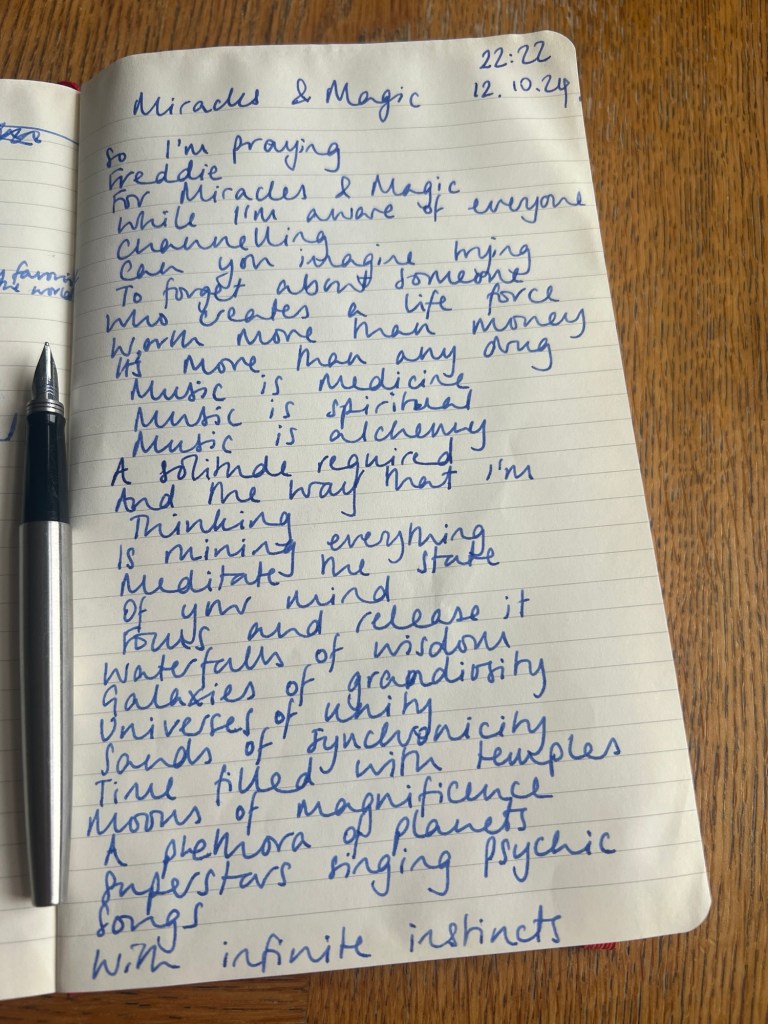 22:22
Miracles & Magic
12.10.24
So I'm praying
Freddie
For Miracles & Magic
While I'm aware of everyone
Channelling
Can you imagine trying
To forget about someone
Who creates a life force
Worth more than money
It's more than any drug
Music is medicine
Music is spiritual
Music is alchemy
A solitude required
And the way that I'm
Thinking
Is mining everything
Meditate the state
Of your mind
Focus and release it
Waterfalls of wisdom
Galaxies of grandiosity
Universes of unity
Sands of synchronicity
Time filled with temples
Moons of magnificence
A plethora of planets
Superstars singing psychic
Songs
With infinite instincts
the world